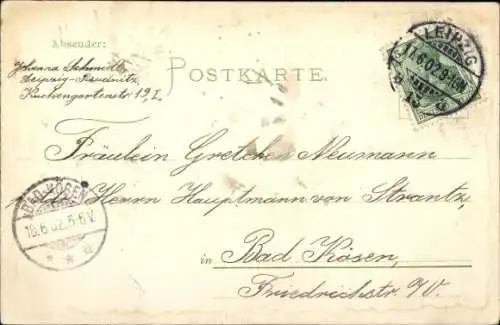 Absender:
Johanna Schmidt,
Leipzig-Reudnitz
Kuchengartenstr. 19, I.
POSTKARTE.
LEIPZIG
17.6.02. 9-10N.
Fräulein Gretchen Neumann
Herrn Hauptmann von Strantz,
in Bad Kösen,
Friedrichstr.
BAD KÖSEN
18.6.02. 5-6V.